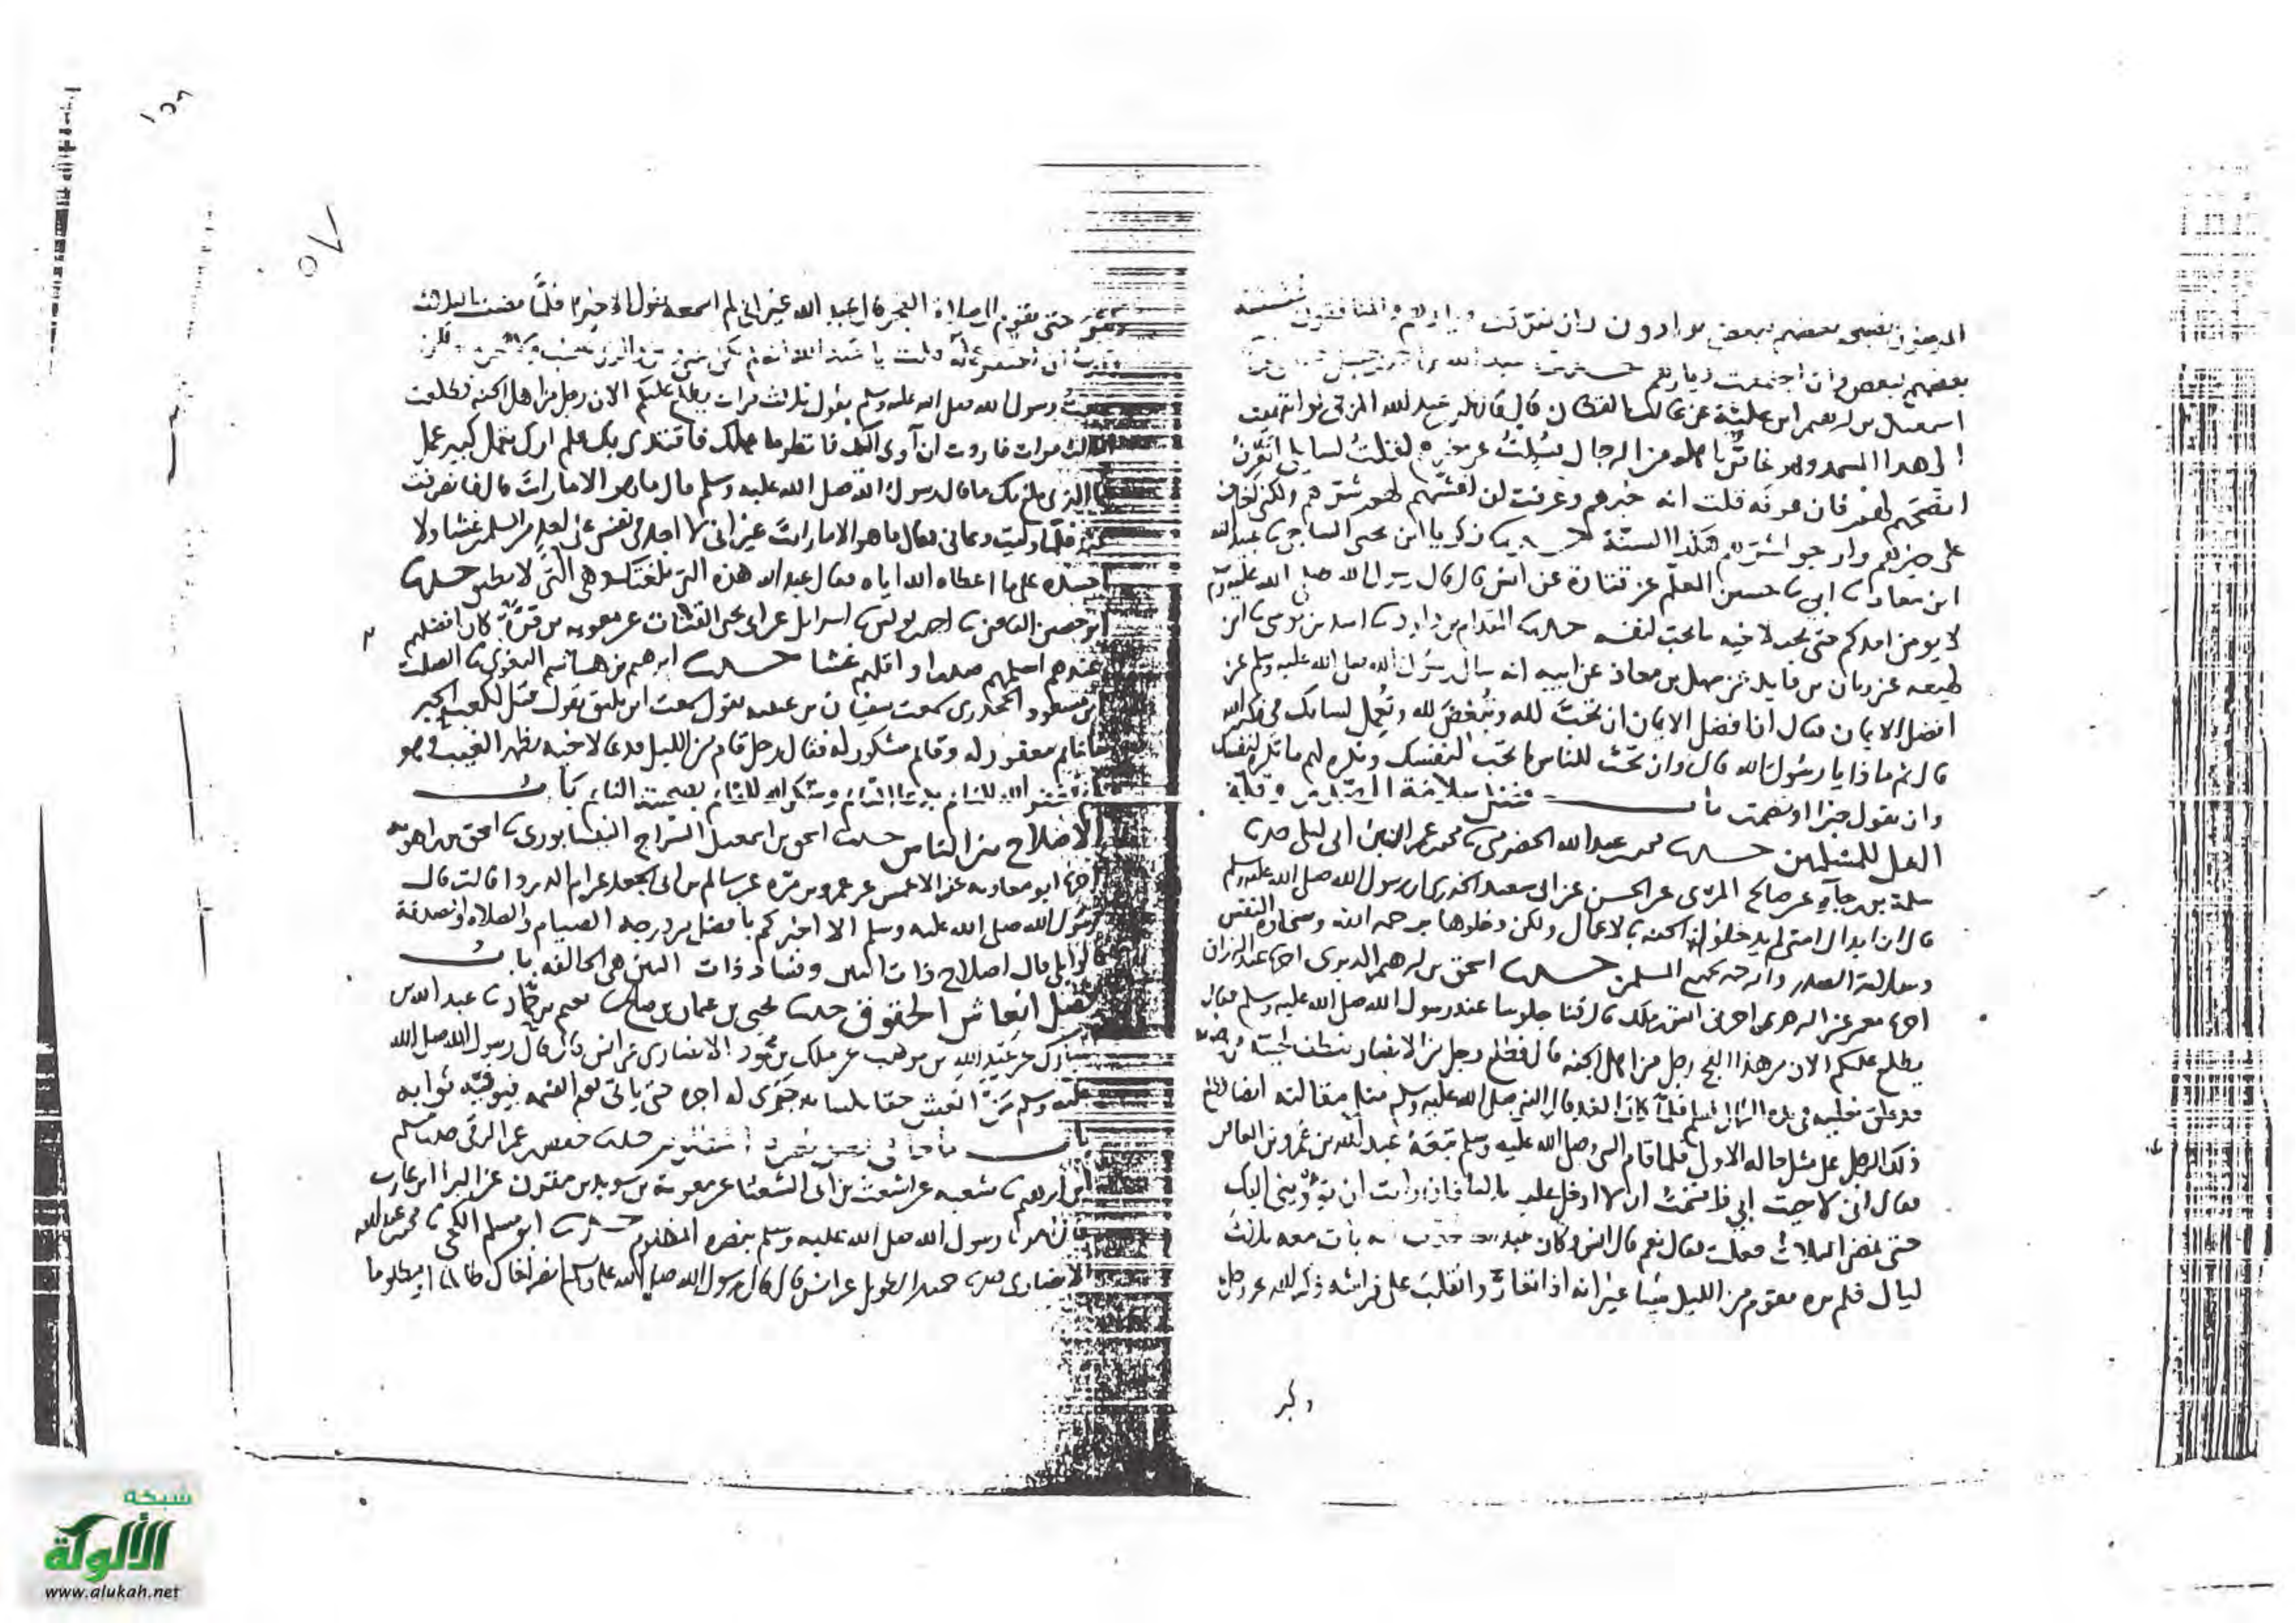 المؤمنون نصحة بعضهم لبعض يوادون وان تفرقت ديارهم والمنافقون غششة
بعضهم لبعض وان اجتمعت ديارهم عبد الله بن احمد بن حنبل
اسمعيل بن ابرهيم ابن علية عن غالب القطان قال قال بكر بن عبد الله المزني لو انتهيت
الى هذا المسجد وهو غاص باهله من الرجال فسئلت عن خيرهم لقلت لسايلي اتعرف
انصحهم لهم فان عرفه قلت انه خيرهم وعرفت ان اغشهم لهم شرهم ولكن اخاف
على خيرهم وارجو لشرهم هكذا السنة حدثنا زكريا ابن يحيى الساجي ثنا عبيد الله
ابن معاذ ثنا ابي ثنا حسين المعلم عن قتادة عن انس قال قال رسول الله صلى الله عليه وسلم
لا يومن احدكم حتى يحب لاخيه ما يحب لنفسه حدثنا المقدام بن داود ثنا اسد بن موسى ثنا ابن
لهيعه عن زبان بن فايد عن سهل بن معاذ عن ابيه انه سال رسول الله صلى الله عليه وسلم عن
افضل الايمان فقال ان افضل الايمان ان تحب لله وتبغض لله وتعمل لسانك في ذكر الله
قال ثم ماذا يا رسول الله قال وان تحب للناس ما تحب لنفسك وتكره لهم ما تكره لنفسك
وان تقول خيرا او تصمت باب فضل سلامة الصدر وقلة
الغل للمسلمين حدثنا محمد بن عبد الله الحضرمي ثنا محمد بن عمران بن ابي ليلى حدثنا
سلمة بن رجاء عن صالح المري عن الحسن عن ابي سعيد الخدري ان رسول الله صلى الله عليه وسلم
قال ان ابدال امتي لم يدخلوا الجنه بالاعمال ولكن دخلوها برحمه الله وسخاوة النفس
وسلامة الصدر والرحمه بجميع المسلمين حدثنا اسحق بن ابرهيم الدبري اخبرنا عبد الرزاق
اخبرنا معمر عن الزهري اخبرني انس بن ملك قال كنا جلوسا عند رسول الله صلى الله عليه وسلم فقال
يطلع عليكم الان من هذا الفج رجل من اهل الجنه قال فطلع رجل من الانصار تنطف لحيته من وضوه
قد علق نعليه في يده الشمال فسلم فلما كان الغد قال النبي صلى الله عليه وسلم مثل مقالته ايضا فطلع
ذلك الرجل على مثل حاله الاول فلما قام النبي صلى الله عليه وسلم تبعه عبد الله بن عمرو بن العاص
فقال اني لاحيت ابي فاقسمت ان لا ادخل عليه ثلثا فان رايت ان تؤويني اليك
حتى تمضي الثلاث فعلت فقال نعم قال انس وكان عبد الله يحدث انه بات معه ثلث
ليال فلم يره يقوم من الليل شيئا غير انه اذا تعار وانقلب على فراشه ذكر الله عز وجل
وكبر
وكبر حتى يقوم الى صلاة الفجر قال عبد الله غير اني لم اسمعه يقول الا خيرا فلما مضت الثلاث
وكدت ان احتقر عمله قلت يا عبد الله انه لم يكن بيني وبين والدي غضب ولا هجر ولكن
سمعت رسول الله صلى الله عليه وسلم يقول ثلاث مرات يطلع عليكم الان رجل من اهل الجنه فطلعت
الثلث مرات فاردت ان آوى اليك فانظر ما عملك فاقتدي بك فلم ارك تعمل كبير عمل
فما الذي بلغ بك ما قال رسول الله صلى الله عليه وسلم قال ما هو الا ما رايت قال فانصرفت
عنه فلما وليت دعاني فقال ما هو الا ما رايت غير اني لا اجد في نفسي على احد من المسلمين غشا ولا
احسده على ما اعطاه الله اياه فقال عبد الله هذه التي بلغت بك وهي التي لا نطيق حدثنا
ابو حصين القاضي ثنا احمد بن يونس ثنا اسرايل عن ابي يحيى القتات عن معويه بن قرة كان افضلهم
عندهم اسلمهم صدرا واقلهم غشا حدثنا ابرهيم بن هاشم البغوي ثنا الصلت
ابن مسعود الجحدري سمعت سفيان بن عيينه يقول سمعت ابن يقول قيل لكعب الحبر
ما نائم مغفور له وقائم مشكور له فقال رجل قام من الليل فدعا لاخيه بظهر الغيب وهو
نائم فغفر الله للنائم بدعا القائم وشكر الله للقائم بنصيحته للنائم باب
الاصلاح بين الناس حدثنا اسحق بن اسمعيل السراج النيسابوري ثنا اسحق بن راهويه
اخبرنا ابو معاويه عن الاعمش عن عمرو بن مره عن سالم بن ابي الجعد عن ام الدردا قالت قال
رسول الله صلى الله عليه وسلم الا اخبركم بافضل من درجه الصيام والصلاه والصدقة
قالوا بلى قال اصلاح ذات البين وفساد ذات البين هي الحالقه باب
فضل انعاش الحقوق حدثنا يحيى بن عثمان بن صالح ثنا نعيم بن حماد ثنا عبد الله بن
مبارك عن عبيد الله بن موهب عن ملك بن محمد الانصاري عن انس قال قال رسول الله صلى الله
عليه وسلم من انعش حقا بلسانه جرى له اجره حتى ياتي يوم القيمه فيوفيه ثوابه
باب ما جا في نصرة المظلوم حدثنا حفص بن عمر الرقي حدثنا مسلم
ابن ابرهيم ثنا شعبه عن اشعث بن ابي الشعثا عن معوية بن سويد بن مقرن عن البرا ابن عازب
قال امرنا رسول الله صلى الله عليه وسلم بنصره المظلوم حدثنا ابو مسلم الكجي ثنا محمد بن عبد الله
الانصاري حدثنا حميد الطويل عن انس قال قال رسول الله صلى الله عليه وسلم انصر اخاك ظالما او مظلوما
شبكة
الألوكة
www.alukah.net